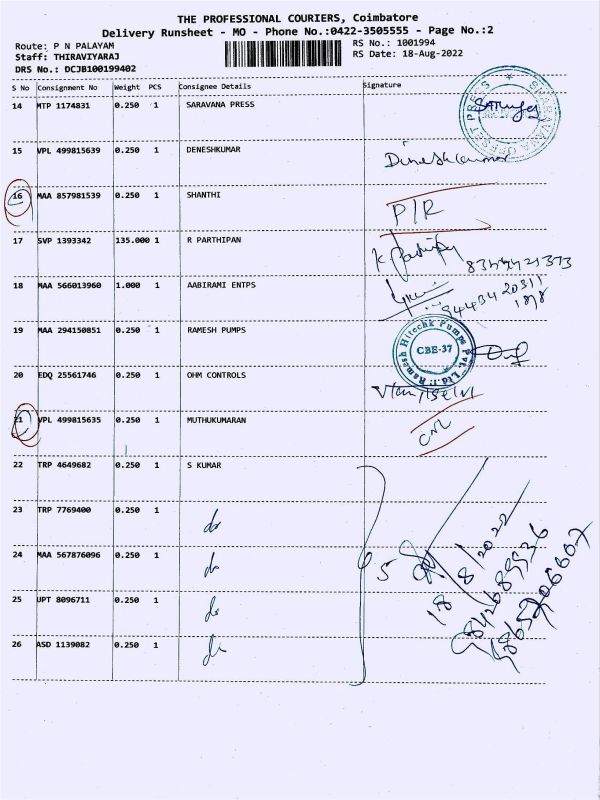 THE PROFESSIONAL COURIERS, Coimbatore
Delivery Runsheet - MO - Phone No.:0422-3505555 - Page No.:2
Route: P N PALAYAM
RS No.: 1001994
Staff: THIRAVIYARAJ
RS Date: 18-Aug-2022
DRS No.: DCJB100199402
S No Consignment No Weight PCS Consignee Details Signature
14 MTP 1174831 0.250 1 SARAVANA PRESS
SARAVANA OFFSET PRESS
15 VPL 499815639 0.250 1 DENESHKUMAR Dineshkumar
16 MAA 857981539 0.250 1 SHANTHI P/R
17 SVP 1393342 135.000 1 R PARTHIPAN
18 MAA 566013960 1.000 1 AABIRAMI ENTPS
19 MAA 294150851 0.250 1 RAMESH PUMPS
Ramesh Hitechk Pumps Pvt. Ltd.
CBE-37
20 EDQ 25561746 0.250 1 OHM CONTROLS
21 VPL 499815635 0.250 1 MUTHUKUMARAN CNL
22 TRP 4649682 0.250 1 S KUMAR
23 TRP 7769400 0.250 1 do
24 MAA 567876096 0.250 1 do
25 UPT 8096711 0.250 1 do
26 ASD 1139082 0.250 1 do
5
18/8/2022